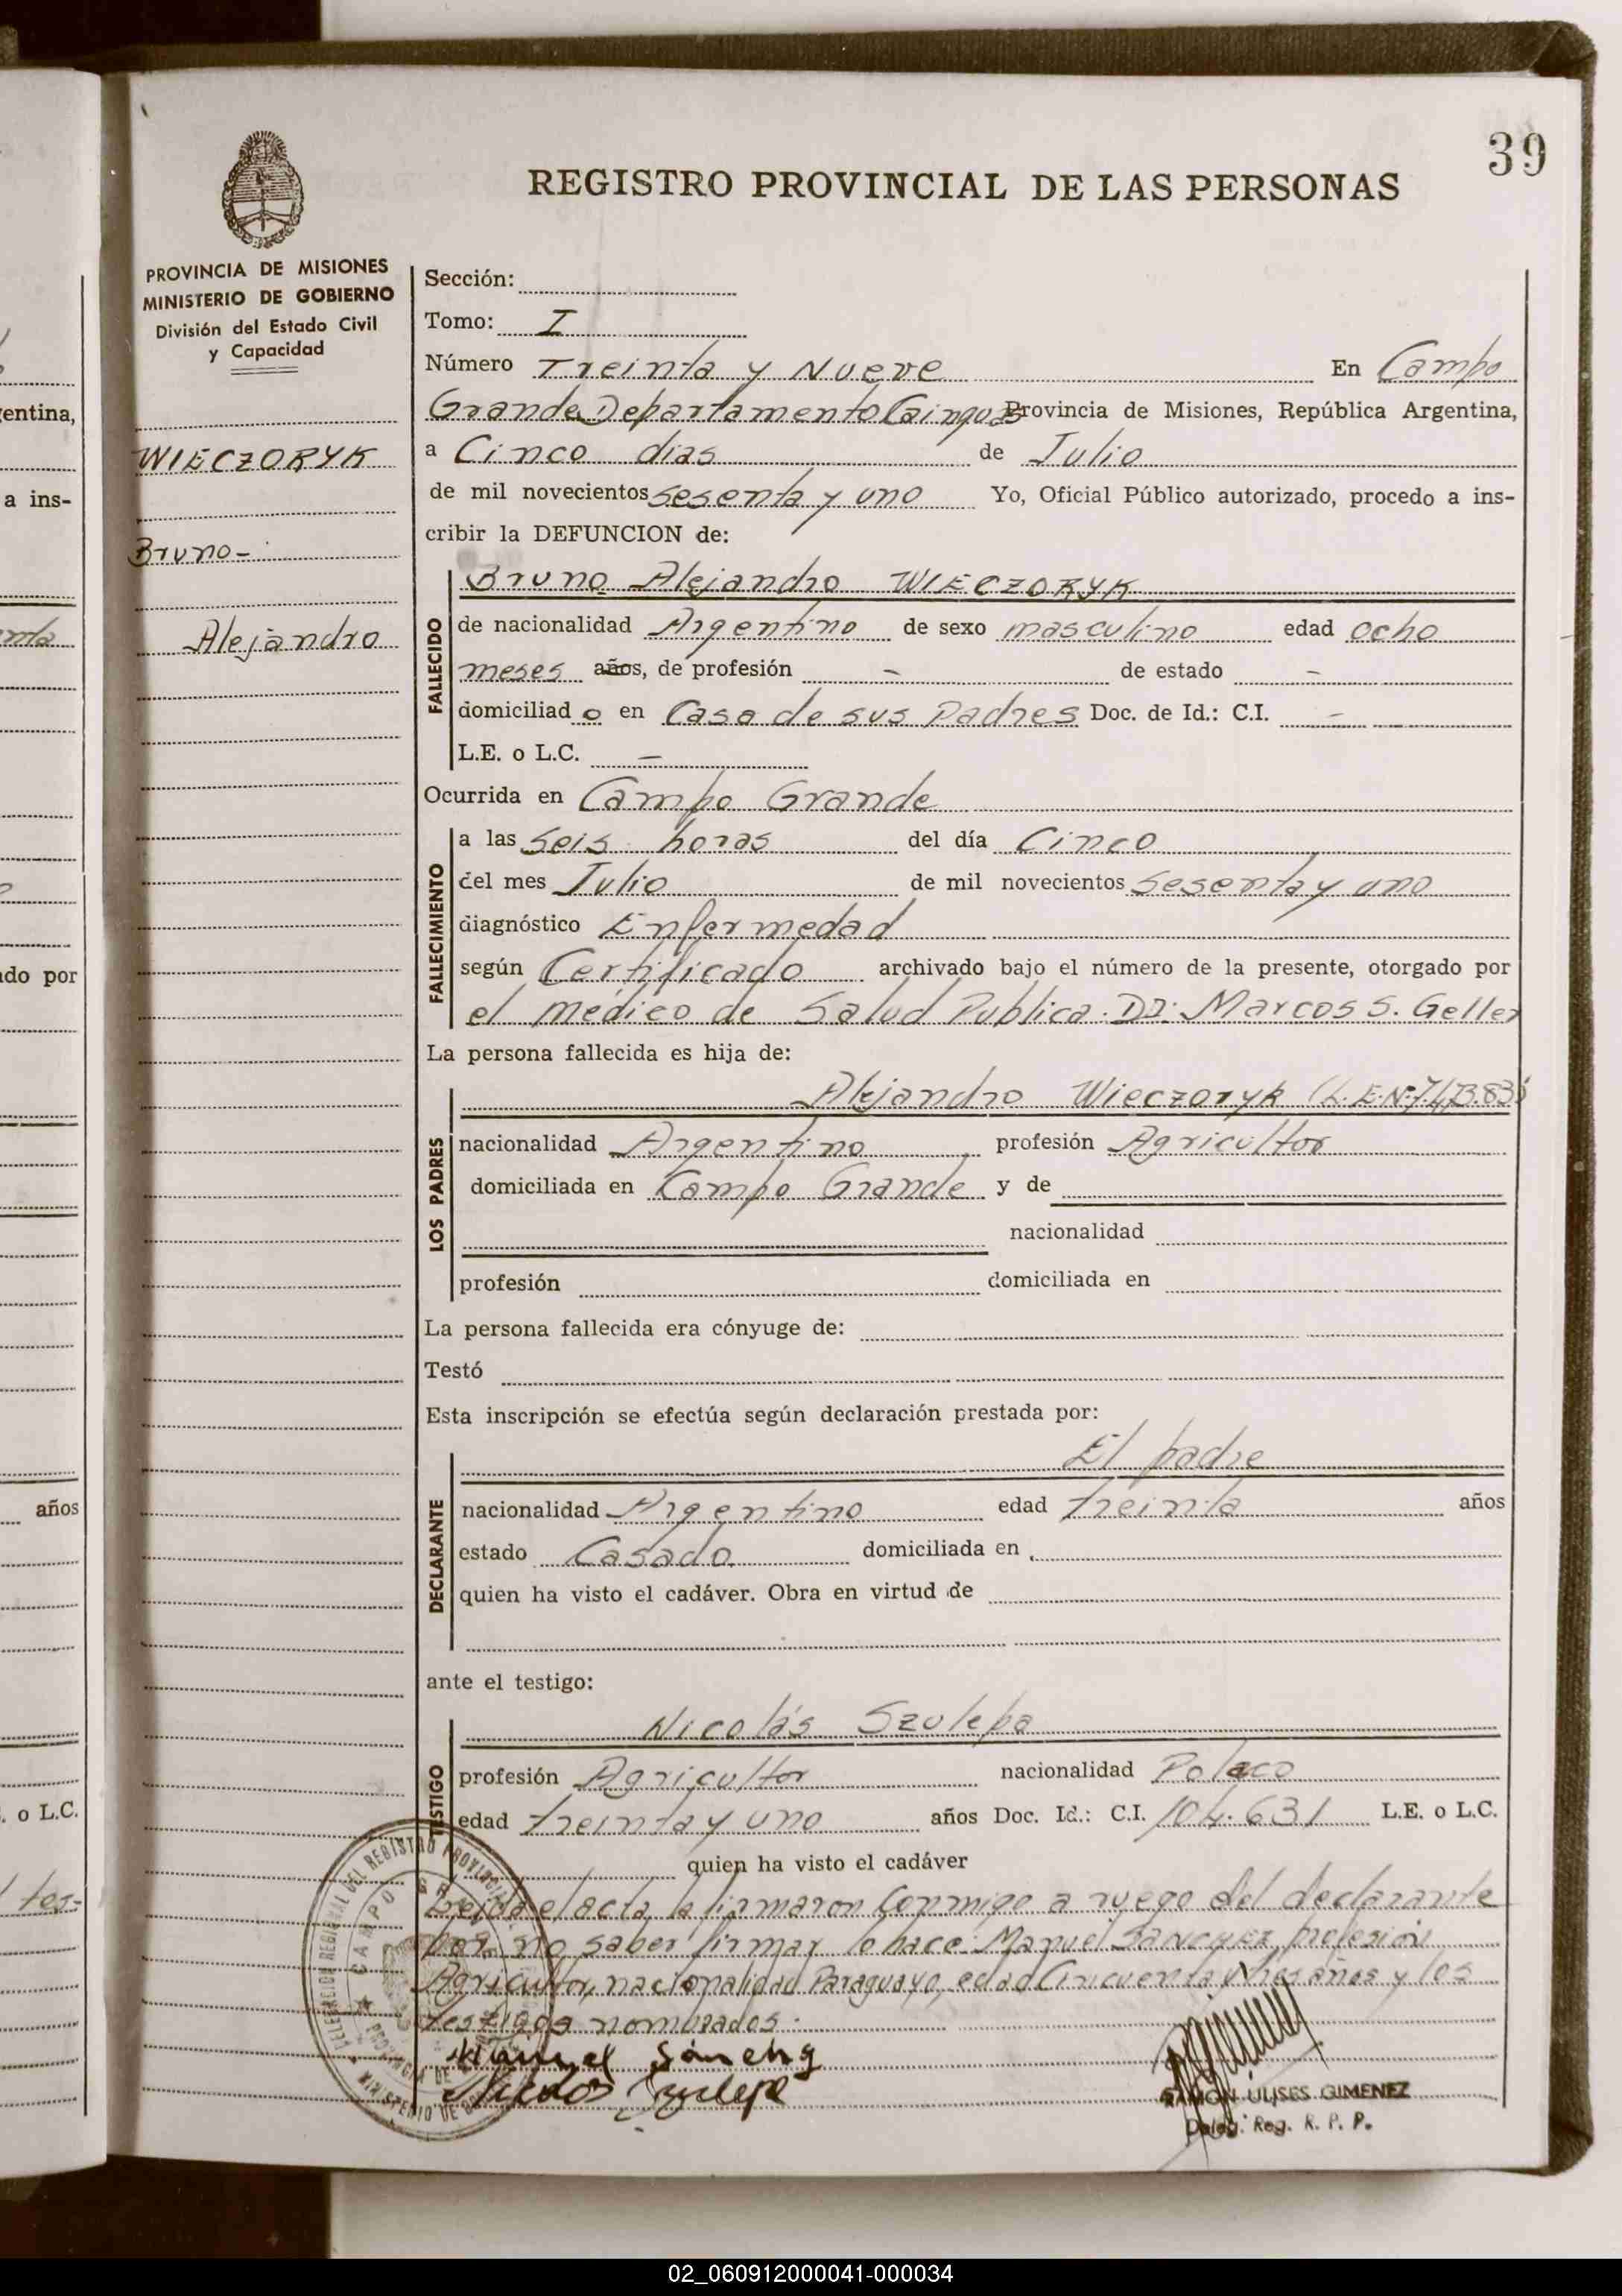 39
REGISTRO PROVINCIAL DE LAS PERSONAS
PROVINCIA DE MISIONES
MINISTERIO DE GOBIERNO
División del Estado Civil
y Capacidad
WIECZORYK
Bruno-
Alejandro
Sección:
Tomo: I
Número Treinta y Nueve En Campo
Grande Departamento Cainguas Provincia de Misiones, República Argentina,
a Cinco dias de Julio
de mil novecientos sesenta y uno Yo, Oficial Público autorizado, procedo a ins-
cribir la DEFUNCION de:
FALLECIDO
Bruno Alejandro WIECZORYK
de nacionalidad Argentino de sexo masculino edad ocho
meses años, de profesión - de estado -
domiciliad o en Casa de sus Padres Doc. de Id.: C.I. -
L.E. o L.C. -
Ocurrida en Campo Grande
FALLECIMIENTO
a las seis horas del día Cinco
del mes Julio de mil novecientos sesenta y uno
diagnóstico Enfermedad
según Certificado archivado bajo el número de la presente, otorgado por
el médico de Salud Publica. Dr: Marcos S. Geller
La persona fallecida es hija de:
LOS PADRES
Alejandro Wieczoryk (L.E.Nº
nacionalidad Argentino profesión Agricultor
domiciliada en Campo Grande y de
nacionalidad
profesión domiciliada en
La persona fallecida era cónyuge de:
Testó
Esta inscripción se efectúa según declaración prestada por:
DECLARANTE
El padre
nacionalidad Argentino edad treinta años
estado Casado domiciliada en
quien ha visto el cadáver. Obra en virtud de
ante el testigo:
TESTIGO
Nicolás Szulepa
profesión Agricultor nacionalidad Polaco
edad treinta y uno años Doc. Id.: C.I. 104.631 L.E. o L.C.
quien ha visto el cadáver
Leida el acta, la firmaron Conmigo a ruego del declarante
por no saber firmar lo hace: Manuel SANCHEZ, profesión
Agricultor, nacionalidad Paraguayo, edad Cincuenta y tres años y los
testigos nombrados.
Manuel
RAMON ULISES GIMENEZ
Deleg. Reg. R. P. P.
entina,
a ins-
ado por
años
. o L.C.
tes-
02_060912000041-000034